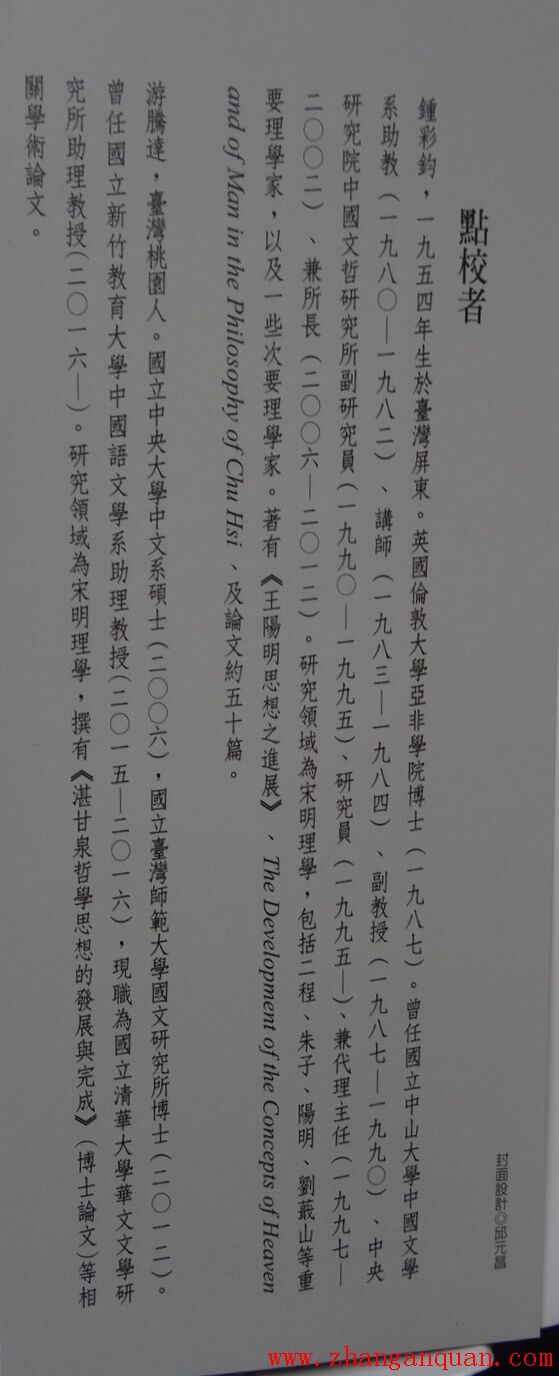 點校者
鍾彩鈞，一九五四年生於臺灣屏東。英國倫敦大學亞非學院博士（一九八七）。曾任國立中山大學中國文學
系助教（一九八〇—一九八二）、講師（一九八三—一九八四）、副教授（一九八七—一九九〇）、中央
研究院中國文哲研究所副研究員（一九九〇—一九九五）、研究員（一九九五—）、兼代理主任（一九九七—
二〇〇二）、兼所長（二〇〇六—二〇一二）。研究領域為宋明理學，包括二程、朱子、陽明、劉蕺山等重
要理學家，以及一些次要理學家。著有《王陽明思想之進展》、The Development of the Concepts of Heaven
and of Man in the Philosophy of Chu Hsi、及論文約五十篇。
游騰達，臺灣桃園人。國立中央大學中文系碩士（二〇〇六），國立臺灣師範大學國文研究所博士（二〇一二）。
曾任國立新竹教育大學中國語文學系助理教授（二〇一五—二〇一六），現職為國立清華大學華文文學研
究所助理教授（二〇一六—）。研究領域為宋明理學，撰有《湛甘泉哲學思想的發展與完成》（博士論文）等相
關學術論文。
封面設計◎邱元昌
www.zhanganquan.com